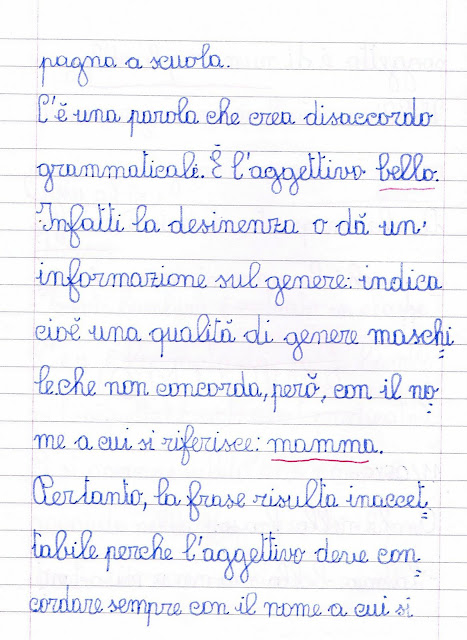 pagna a scuola.
C'è una parola che crea disaccordo
grammaticale. È l'aggettivo bello.
Infatti la desinenza o dà un'
informazione sul genere: indica
cioè una qualità di genere maschi
le che non concorda, però, con il no
me a cui si riferisce: mamma.
Pertanto, la frase risulta inaccet
tabile perche l'aggettivo deve con
cordare sempre con il nome a cui si